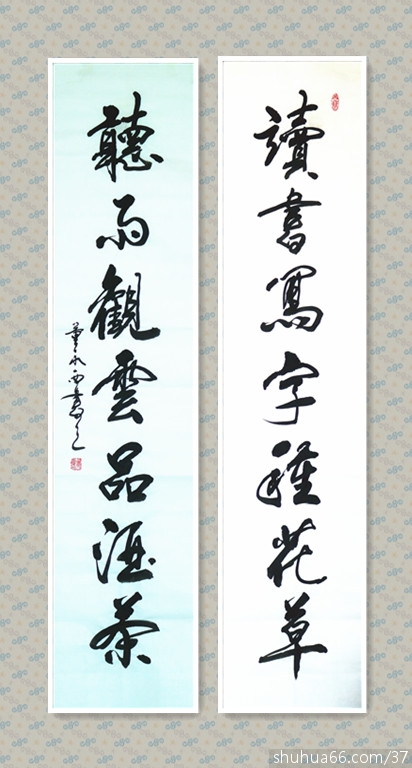 讀書寫字種花草
聽雨觀雲品酒茶
董 西書
shuhua66.com/37